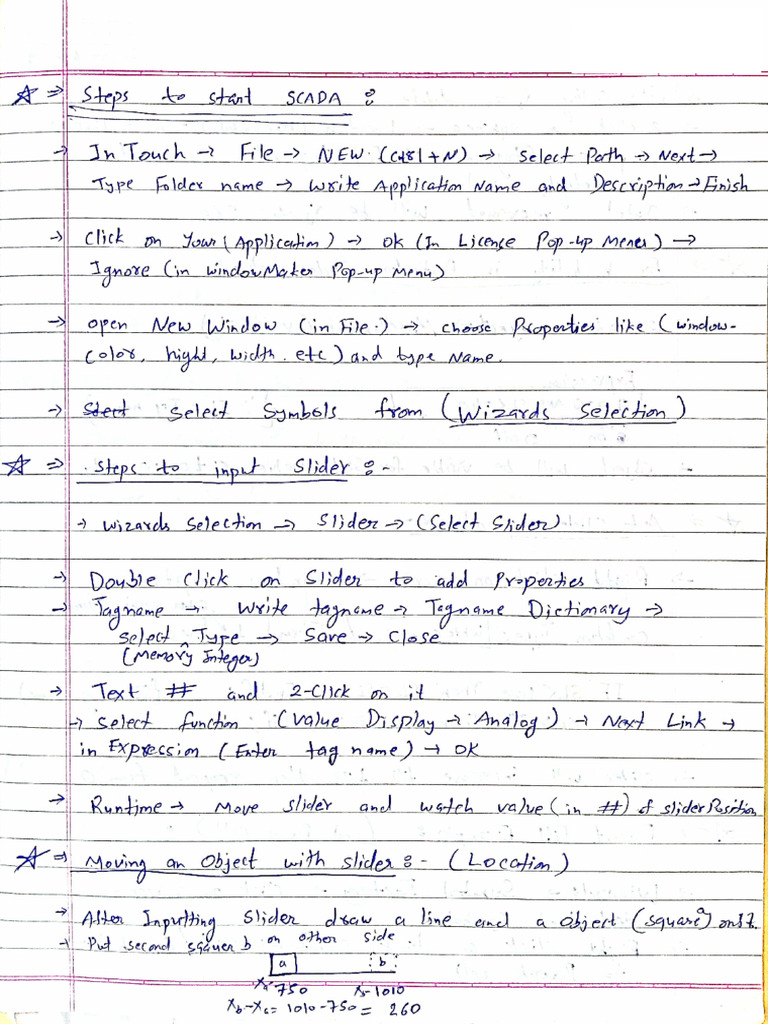 ☆ ⇒ Steps to start SCADA :
→ InTouch → File → NEW (Ctrl+N) → select Path → Next →
Type Folder name → write Application Name and Description → Finish
→ Click on Your (Application) → ok (In License Pop-up Menu) →
Ignore (in windowMaker Pop-up Menu)
→ open New Window (in File.) → choose Properties like (window-
color, hight, width. etc) and type Name.
→ Start Select Symbols from (Wizards Selection)
☆ ⇒ Steps to input Slider :-
→ wizards Selection → Slider → (Select Slider)
→ Double Click on Slider to add Properties
→ Tagname → write tagname → Tagname Dictionary →
select Type → Save → Close
(Memory Integer)
→ Text # and 2-Click on it
→ select function (Value Display → Analog) → Next Link →
in Expression (Enter tag name) → OK
→ Runtime → Move slider and watch value (in #) of slider Position
☆ ⇒ Moving an Object with slider :- (Location)
→ After Inputting Slider draw a line and a object (square a) on it.
→ Put second squer b on other side.
a b
xa 750 xb-1010
xb-xa = 1010-750 = 260